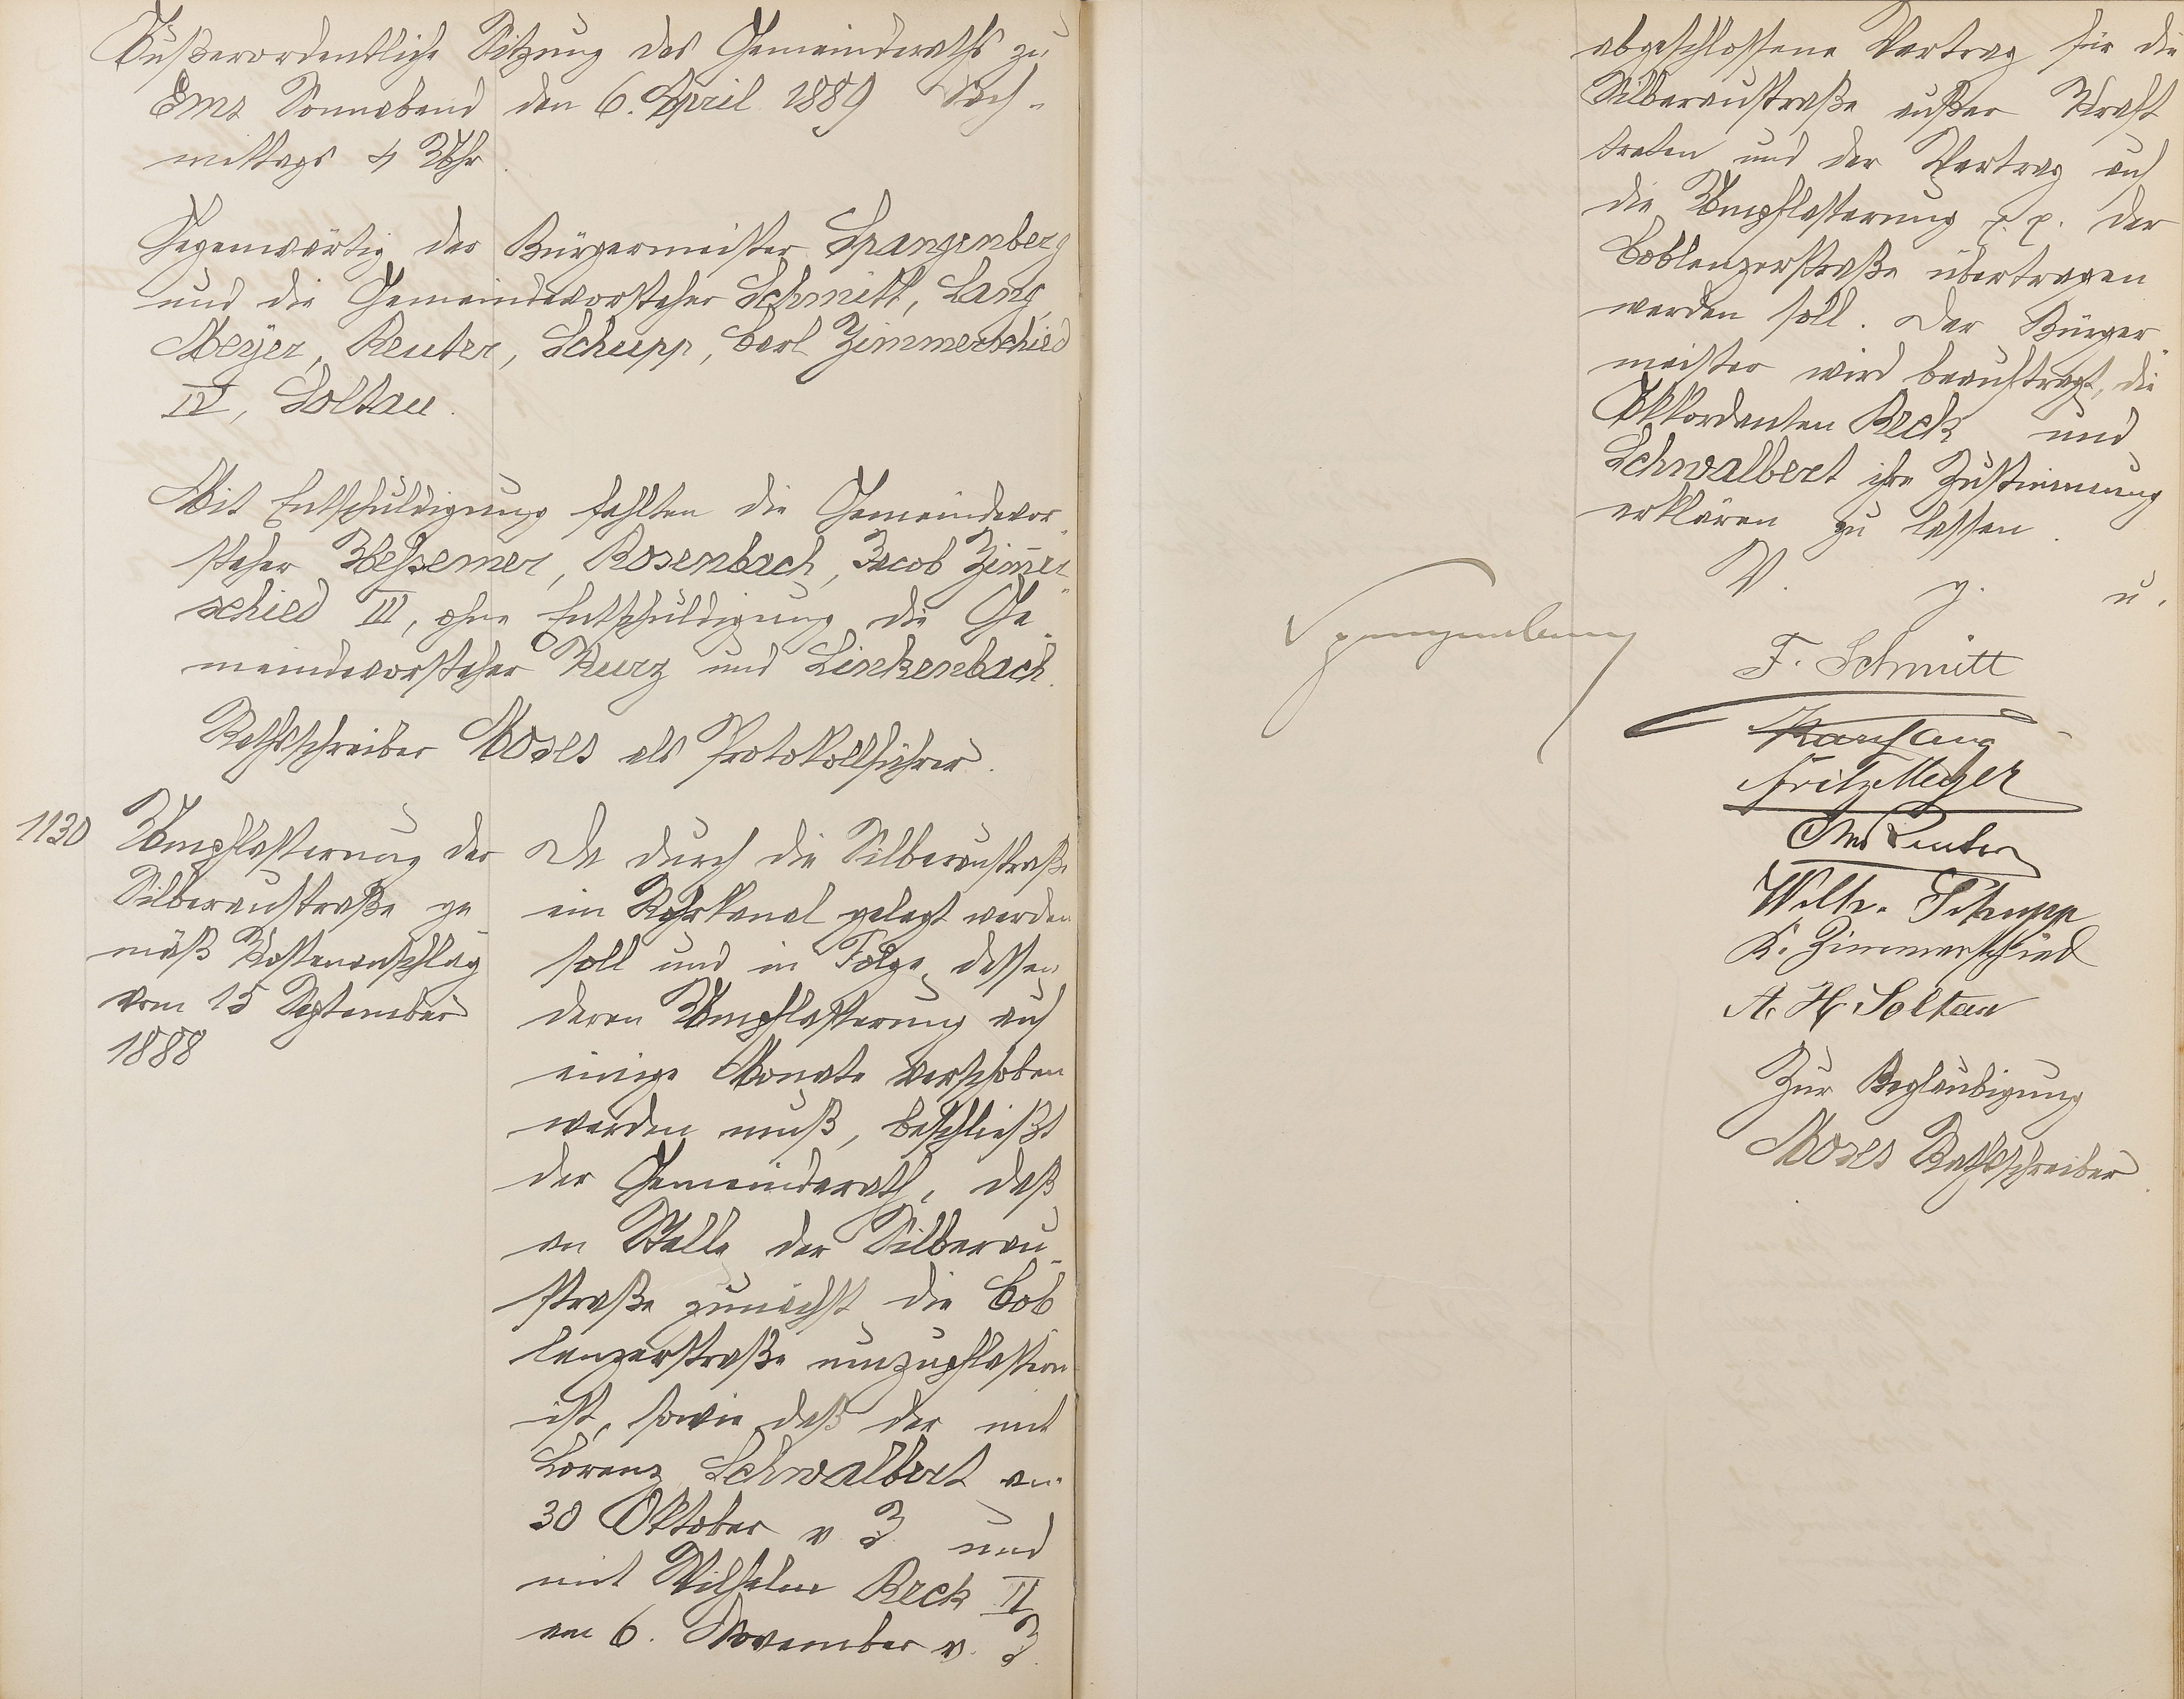 Außerordentliche Sitzung des Gemeinderaths zu
Ems Sonnabend den 6. April 1889 Nach-
mittags 4 Uhr.
Gegenwärtig der Bürgermeister Spangenberg
und die Gemeindevorsteher Schmitt, Lang,
Meyer, Reuter, Schupp, Carl Zimmerschied
IV, Soltau.
Mit Entschuldigung fehlten die Gemeindevor-
steher Weßemer, Rosenbach, Jacob Zim̄er-
schied III, ohne Entschuldigung die Ge-
meindevorsteher Kurz und Linkenbach.
Rathsschreiber Moses als Protokollführer.
1130
Umpflasterung der
Silberaustraße ge-
mäß Kostenanschlag
vom 15 September
1888
Da durch die Silberaustraße
ein Rohrkanal gelegt werden
soll und in Folge dessen
deren Umpflasterung auf
einige Monate verschoben
werden muß, beschließt
der Gemeinderath, daß
an Stelle der Silberau-
straße zunächst die Cob
lenzerstraße umzupflastern
ist, sowie daß der mit
Lorenz Schwalbert am
30 Oktober v. J. und
mit Wilhelm Beck II
am 6. November v. J.
abgeschlossene Vertrag für die
Silberaustraße außer Kraft
treten und der Vertrag auf
die Umpflasterung p. p. der
Coblenzerstraße übertragen
werden soll. Der Bürger-
meister wird beauftragt, die
Akkordanten Beck und
Schwalbert ihre Zustimmung
erklären zu lassen.
V. g. u.
Spangenberg
F. Schmitt
Karl Lang
Fritz Meyer
Reuter
Wilh. Schupp
K. Zimmerschied
A. H. Soltau
Zur Beglaubigung
Moses Rathsschreiber.